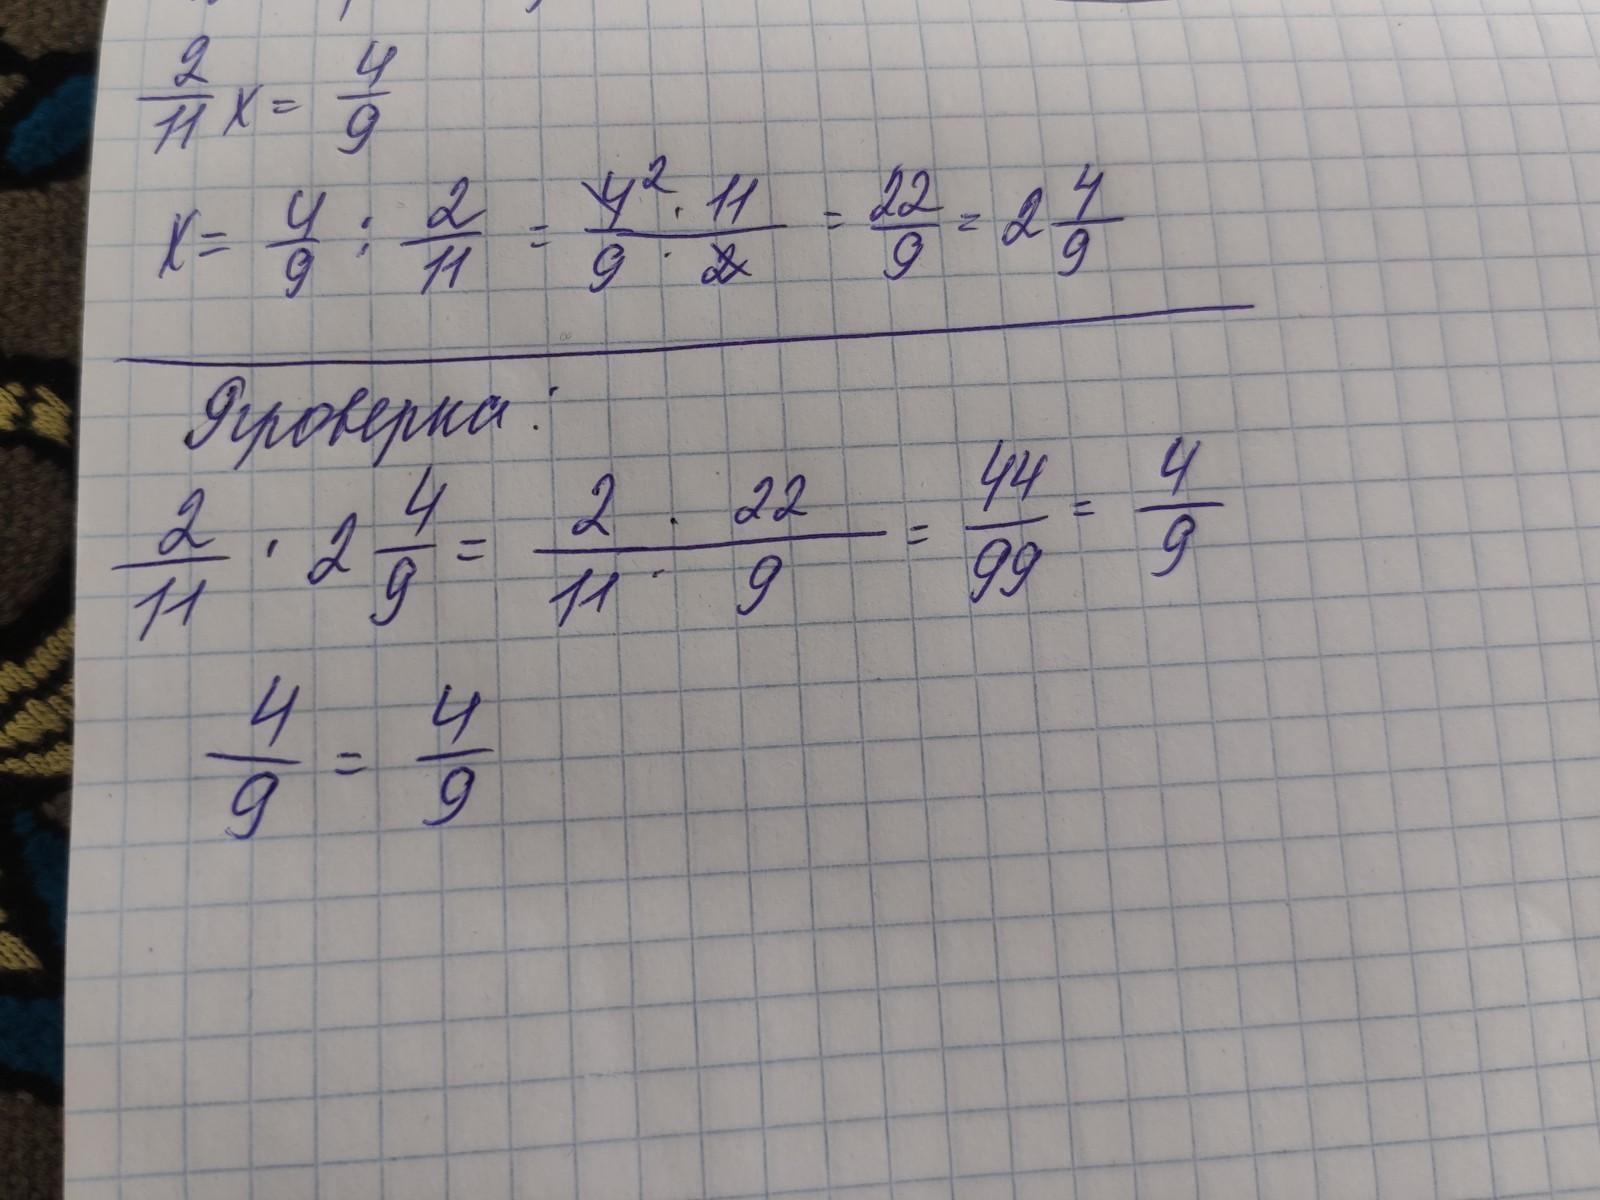 2/11 x = 4/9
x = 4/9 : 2/11 = 4² · 11 / 9 · 2 = 22/9 = 2 4/9
Проверка:
2/11 · 2 4/9 = 2 · 22 / 11 · 9 = 44/99 = 4/9
4/9 = 4/9